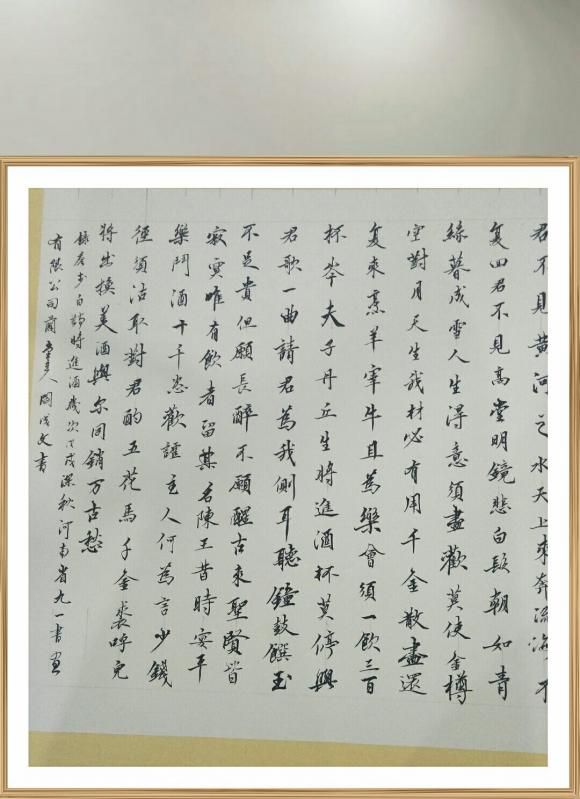 君不見黄河之水天上來奔流海不
复回君不見高堂明鏡悲白髮朝如青
絲暮成雪人生得意須盡歡莫使金樽
空對月天生我材必有用千金散盡還
复來烹羊宰牛且為樂會須一飲三百
杯岑夫子丹丘生將進酒杯莫停與
君歌一曲請君為我側耳聽鐘鼓饌玉
不足貴但願長醉不願醒古來聖賢皆
寂寞唯有飲者留其名陳王昔時宴平
樂鬥酒十千恣歡謔主人何為言少錢
徑須沽取對君酌五花馬千金裘呼兒
將出換美酒與尔同銷万古愁
錄李白詩將進酒歲次戊戌深秋河南省九一書画
有限公司蘭人周成文書